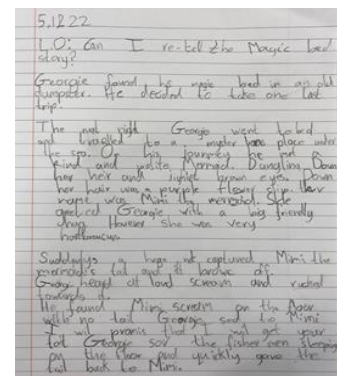 5.12.22
L.O: Can I re-tell the Magic bed
story?
Georgie found his magic bed in an old
dumpster. He decided to take one last
trip!
The next night Georgie went to bed
and travelled to a place under
the sea. On his journey he met
kind and Mermaid. Dangling Down
her heir and light brown eyes. Down
her hair was a purple flower clip. Her
name was Mimi the mermaid. She
greeted Georgie with a big friendly
hug. However she was very
Suddenlys a huge net captured Mimi the
mermaid's tail and it off.
Georgie heard at loud scream and rushed
towards it.
He found Mimi scream on the floor
with no tail Georgie said to Mimi
I will promis that I will get your
tail Georgie sor the fisher men sleeping
on the floor and quickly gave the
tail back to Mimi.